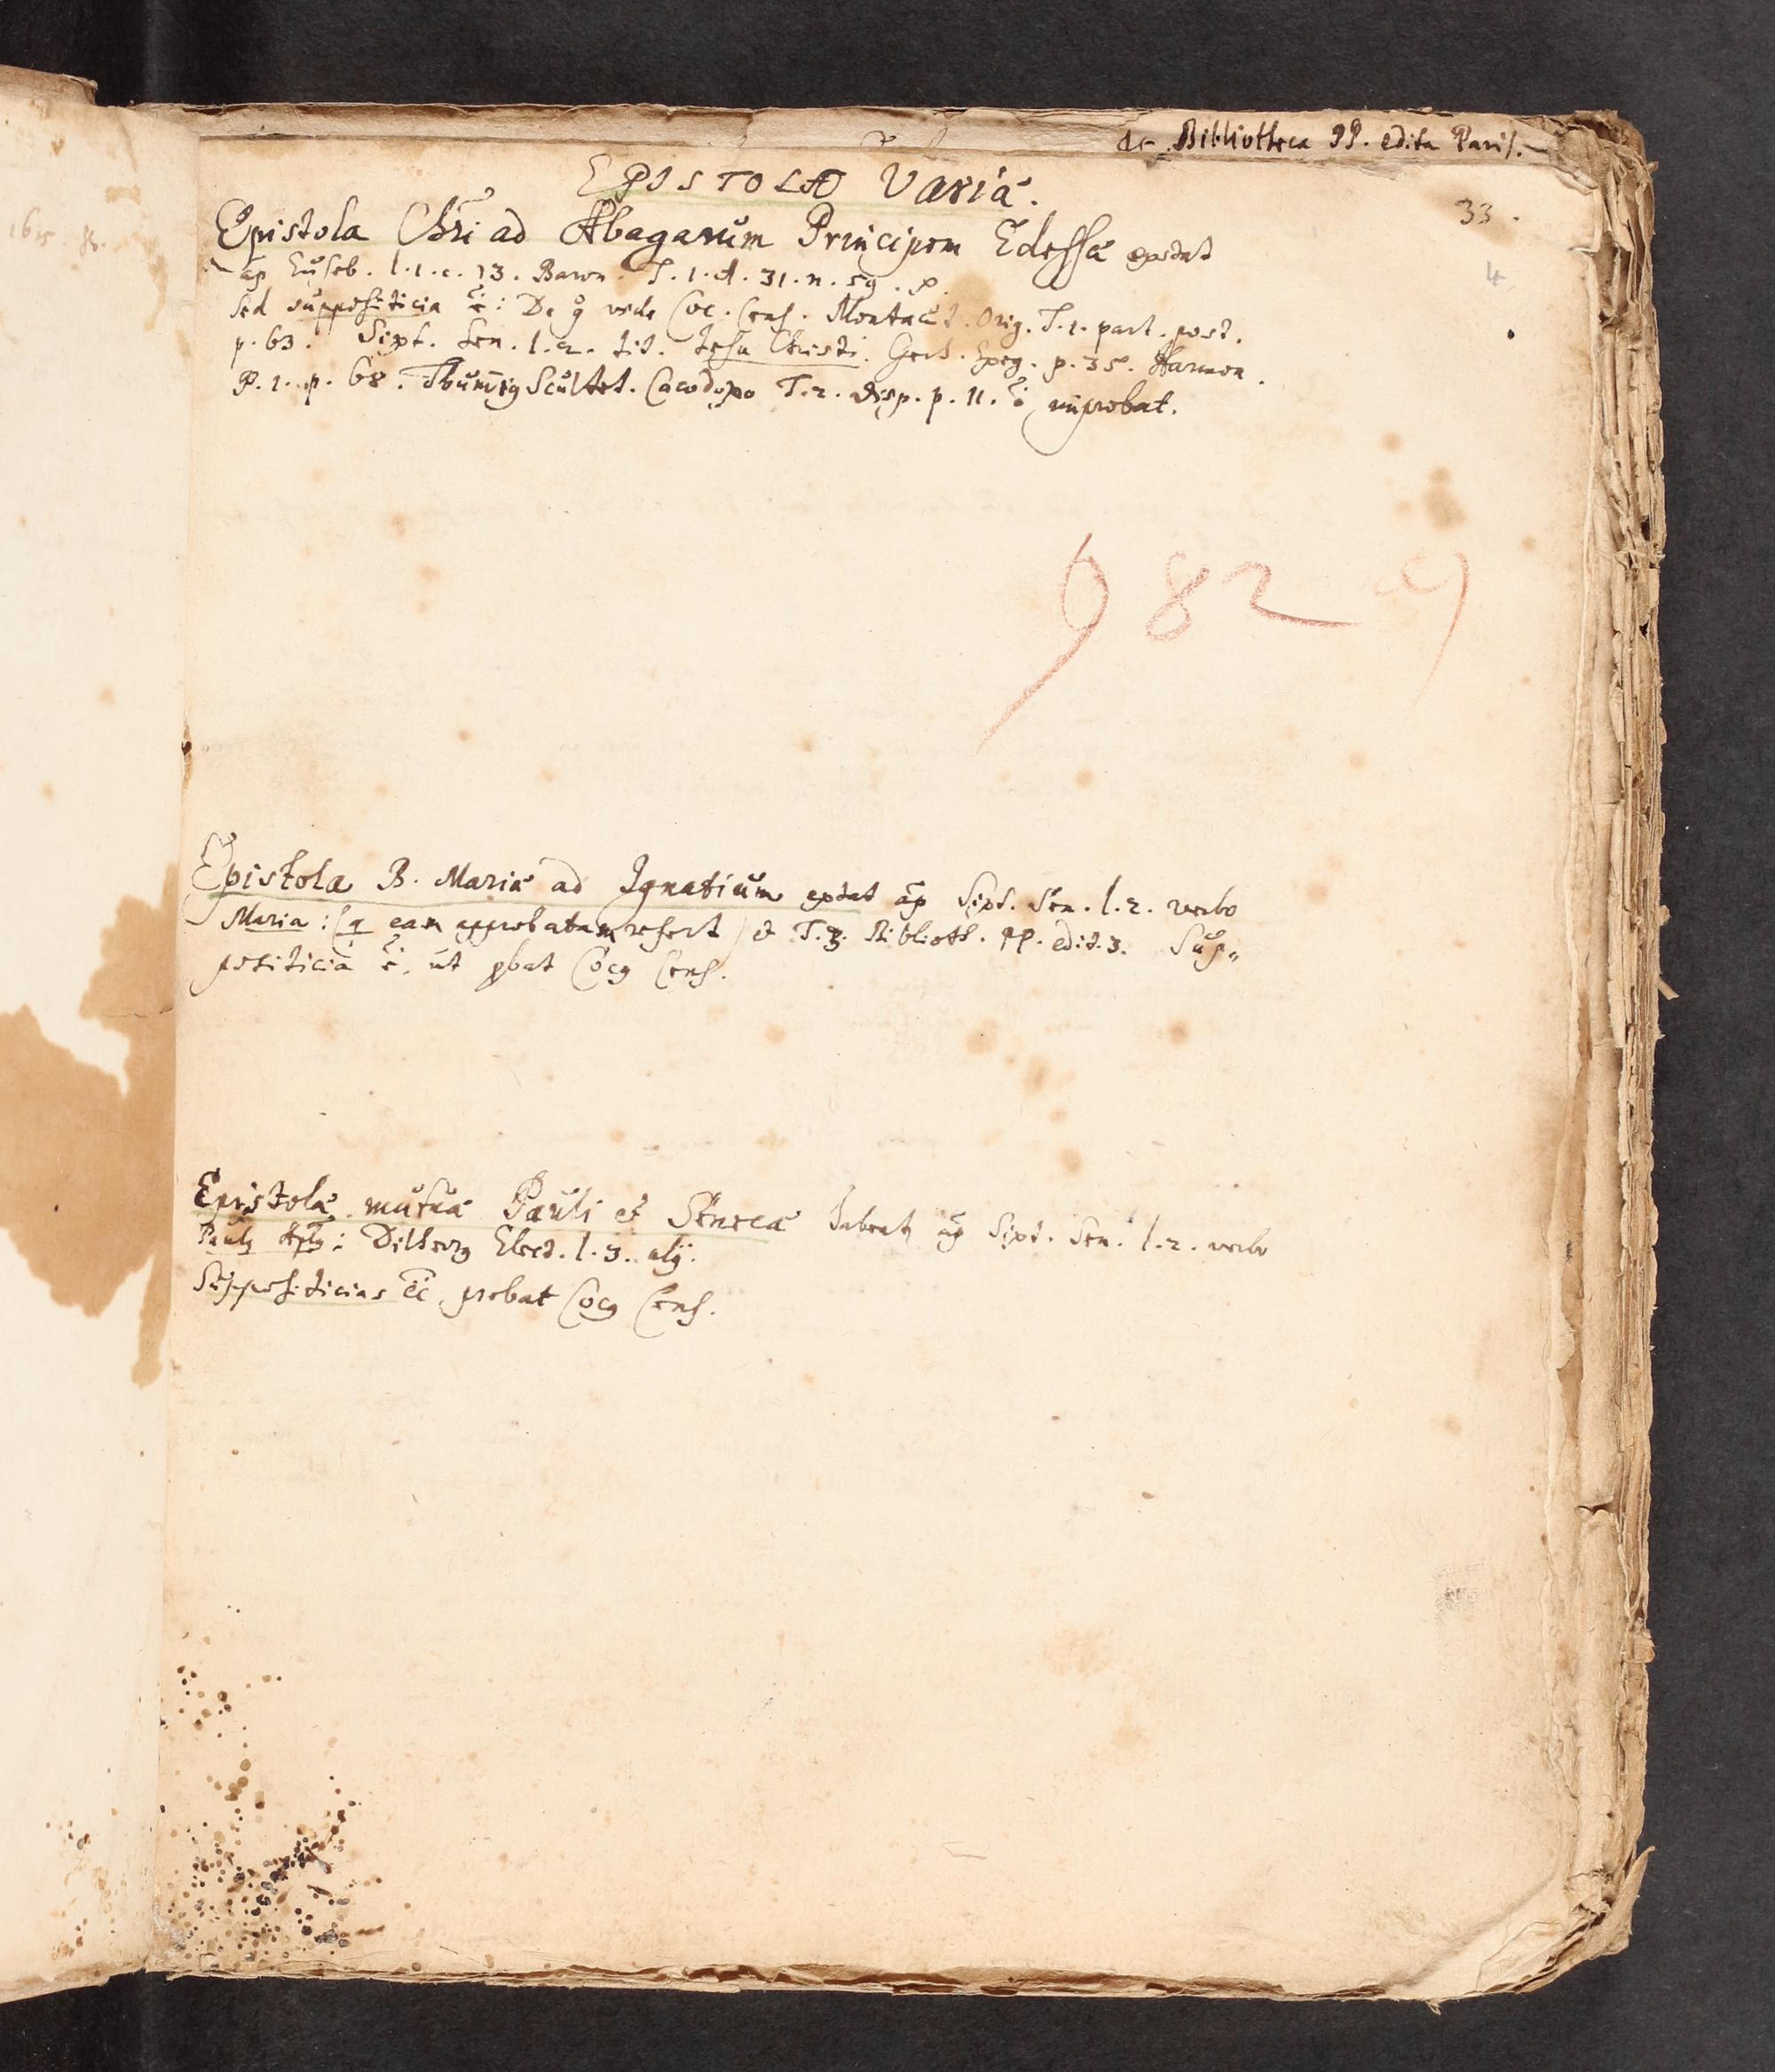 de Bibliotheca PP. edita Paris.
EPISTOLÆ Variæ.
33.
4
Epistola Chri ad Abagarum Principem Edessæ extat
ap Euseb. l.1.c.13. Baron. T.1.d.31.n.59.
sed supposititia ē: De q vide Coc. Cens. Montacut. Orig. T.1. part. post.
p. 63. Sixt. Sen. l.2. tit. Jesu Christi. Gerh. Exeg. p.35. Harmon.
P.1. p. 68. Scultet. T.2. disp. p. 11. improbat.
982
Epistola B. Mariæ ad Ignatium extat ap Sixt. Sen. l.2. verbo
Maria: (q eam approbatam refert) & T.3. Biblioth. PP. edit.3. Sup=
posititia ē, ut pbat Cocq Cens.
Epistolæ mutuæ Pauli et Senecæ habent ap Sixt. Sen. l.2. verbo
Paulq Aplq: Dilherrq Elect. l.3. alij.
Supposititias eē probat Cocq Cens.